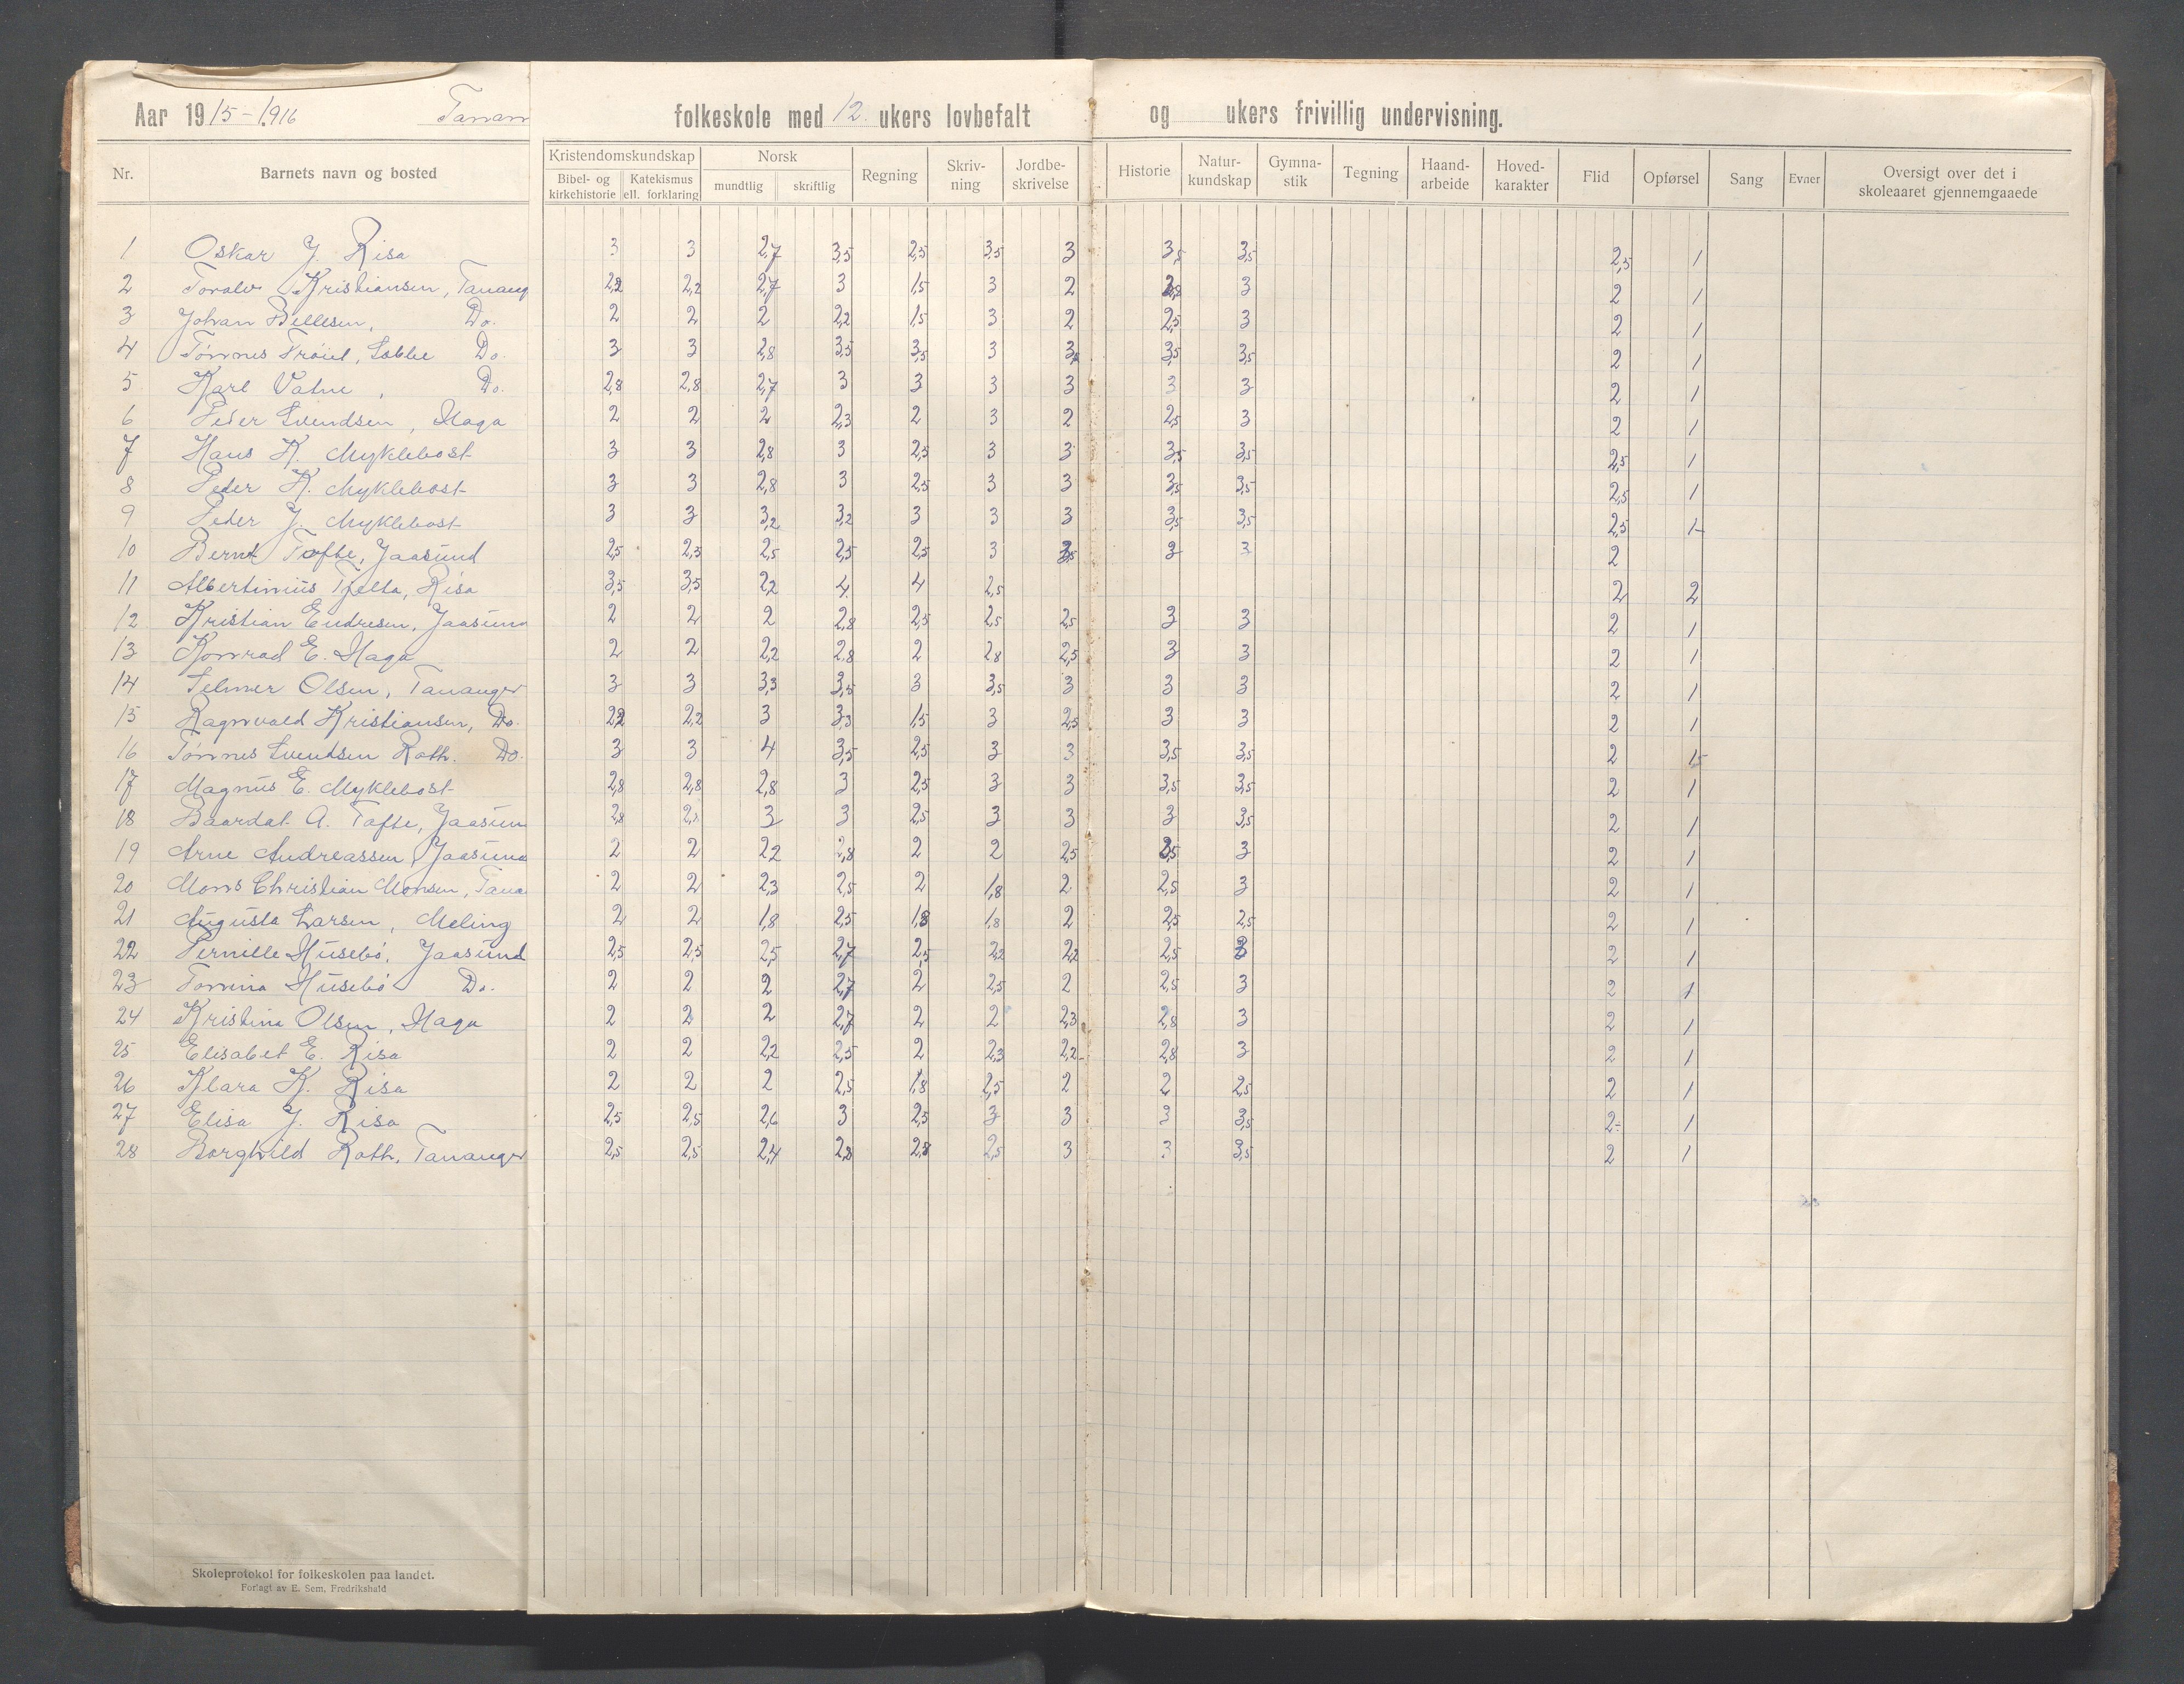 Aar 1915-1916 Tanan folkeskole med 12 ukers lovbefalt og ukers frivillig undervisning.
Nr. Barnets navn og bosted Kristendomskundskap Bibel- og kirkehistorie Katekismus ell. forklaring Norsk mundtlig skriftlig Regning Skriv-ning Jordbe-skrivelse Historie Natur-kundskap Gymna-stik Tegning Haand-arbeide Hoved-karakter Flid Opførsel Sang Evner Oversigt over det i skoleaaret gjennemgaaede
1 Oskar J. Risa 3 3 2,7 3,5 2,5 3,5 3 3,5 3,5 2,5 1
2 Toralv Kristiansen, Tanang 2,2 2,2 2,7 3 1,5 3 2 3 2 1
3 Johan Bellesen, Do. 2 2 2 2,2 1,5 3 2 2,5 3 2 1
4 Tønnes Trøiel, Do. 3 3 2,8 3,5 3,5 3 3,5 3,5 2 1
5 Karl Vatne, Do. 2,8 2,8 2,7 3 3 3 3 3 3 2 1
6 Peder Svendsen, Haga 2 2 2 2,3 2 3 2 2,5 3 2 1
7 Hans K. Myklebost 3 3 2,8 3 2,5 3 3 3,5 3,5 2,5 1
8 Peder K. Myklebost 3 3 2,8 3 2,5 3 3 3,5 3,5 2,5 1
9 Peder J. Myklebost 3 3 3,2 3,2 3 3 3 3,5 3,5 2,5 1
10 Bernt Tofte, Jaasund 2,5 2,5 2,5 2,5 2,5 3 3 3 2
11 Albertinius Tjelta, Risa 3,5 3,5 2,2 4 4 2,5 2 2
12 Kristian Endresen, Jaasund 2 2 2 2,8 2,5 2,5 2,5 3 3 2 1
13 Konrad E. Haga 2 2 2,2 2,8 2 2,8 2,5 3 3 2 1
14 Selmer Olsen, Tananger 3 3 3,3 3,5 3 3,5 3 3 3 2 1
15 Ragnvald Kristiansen, Do. 2,2 2,2 3 3,3 1,5 3 2,5 3 3 2 1
16 Tønnes Svendsen Roth. Do. 3 3 4 3,5 2,5 3 3 3,5 3,5 2 1,5
17 Magnus E. Myklebost 2,8 2,8 2,8 3 2,5 3 3 3,5 3,5 2 1
18 Baardal A. Tofte, Jaasun 2,8 2,8 3 3 2,5 3 3 3 3,5 2 1
19 Arne Andreassen, Jaasund 2 2 2,2 2,8 2 2 2,5 3 2 1
20 Mons Christian Monsen, Tana 2 2 2,3 2,5 2 1,8 2 2,5 3 2 1
21 Augusta Larsen, Meling 2 2 1,8 2,5 1,8 1,8 2 2,5 2,5 2 1
22 Pernille Husebø, Jaasund 2,5 2,5 2,5 2,7 2,5 2,2 2,2 2,5 3 2 1
23 Tomina Husebø Do. 2 2 2 2,7 2 2,5 2 2,5 3 2 1
24 Kristina Olsen, Haga 2 2 2 2,7 2 2 2,3 2,8 3 2 1
25 Elisabet E. Risa 2 2 2,2 2,5 2 2,3 2,2 2,8 3 2 1
26 Klara K. Risa 2 2 2 2,5 1,8 2,5 2 2 2,5 2 1
27 Elisa J. Risa 2,5 2,5 2,6 3 2,5 3 3 3 3,5 2 1
28 Borghild Roth, Tananger 2,5 2,5 2,4 2,8 2,8 2,5 3 3 3,5 2 1
Skoleprotokol for folkeskolen paa landet.
Forlagt av E. Sem, Fredrikshald